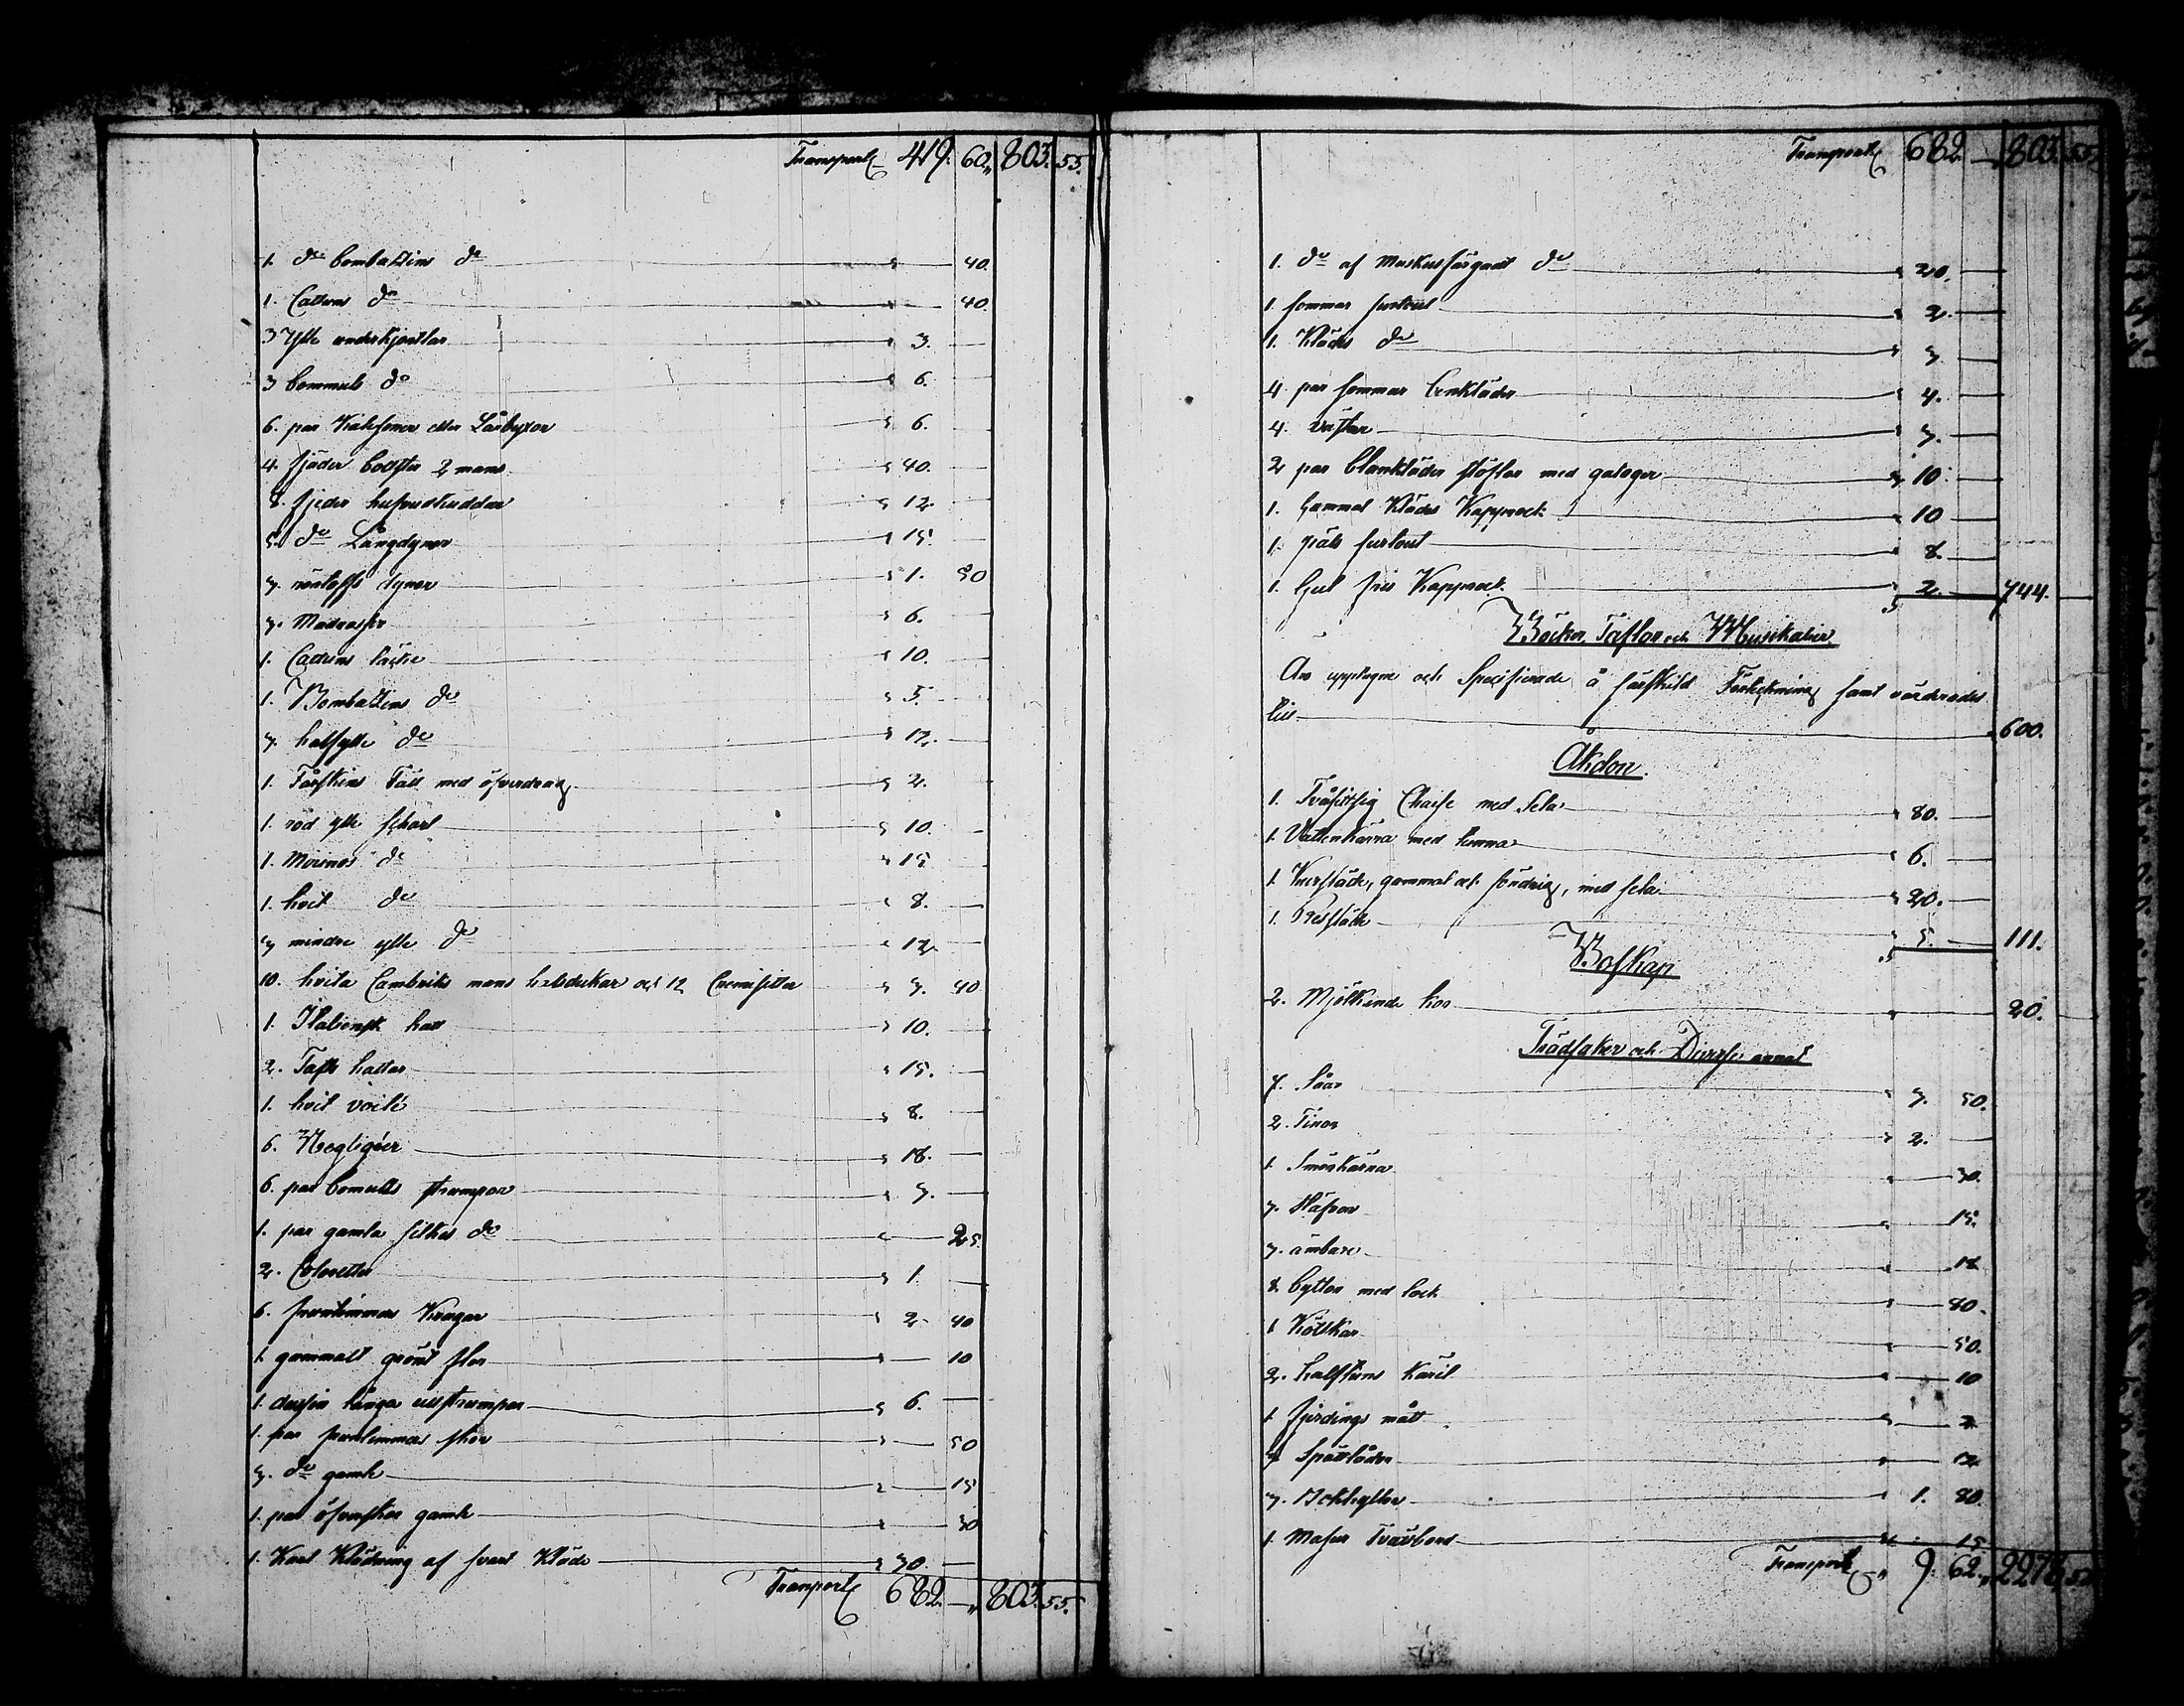 Transport 419. 60. 803. 55.
1. do bombazins do 40.
1. Cattuns do 40.
3 Ylle underkjortlar 3.
3 bommuls do 6.
6. par Kalsoner eller Lårbyxor 6.
4. fjäder bolster 2 mans 40.
8. fjeder hufvudkuddar 12
5. do Långdyner 15.
3. dyner 1. 50
3. Madrasser 6.
1. Cattuns täcke 10.
1. Bombazins do 5.
3. halfylle do 12.
1. Fårskins Fäll med öfverdrag 2.
1. röd ylle schavl 10.
1. Merinos do 15
1. hvit do 8.
3 mindre ylle do 12
10. hvita Cambriks mans halsdukar och 12 Chemisetter 3. 40
1. Italiensk hatt 10.
2. Tafts hattar 15.
1. hvit voile 8.
6. Negligéer 18.
6. par bomulls strumpor 3.
1. par gamla silkes do 25.
2. Coloretter 1.
6. fruntimmers Kragar 2. 40
1. gammalt grönt flor 10
1. dussin långa ullstrumpor 6.
1. par fruntimmers skor 50
3. do gamle 15
1. par öfverskor gamle 30
1. Karl Klädning af svart Kläde 30.
Transport 682. 803. 55.
Transport 682. 803. 55.
1. do af Muskusfärgadt do 20.
1. sommar surtout 2.
1. Klädes do 3
4 par sommar benkläder 4.
4. västar 3.
2 par blankläder stöflar med galoger 10.
1. Gammal Klädes Kapprock 10
1. päls surtout 8.
1. Gul fris Kapprock 2. 744.
Böcker, Taflor och Musikalier
Äro upptagne och Specificerade å särskild Förteckning samt värderades
till 600.
Åkdon.
1. Tvåsitsig Chaise med Sela 80.
1. Vattenkärra med tunna 6.
1. Kursläde, gammal och söndrig, med sela 20.
1. Resläde 5. 111.
Boskap
2. Mjölkande kor 20.
Trädsaker och Diverse annat
7. Såar 3. 50.
2. Tinor 2.
1. Smörkärna 30.
3. Stäfvor 15.
3. ämbare 18
8. byttor med lock 80.
1 Köttkar 50.
2. halftuns Käril 10
1. fjerdings mått 3
4 Spottlådor 12
3. Bokhyllor 1. 80
1. Masur Tvärbord 15
Transport 9. 62. 2278. 55